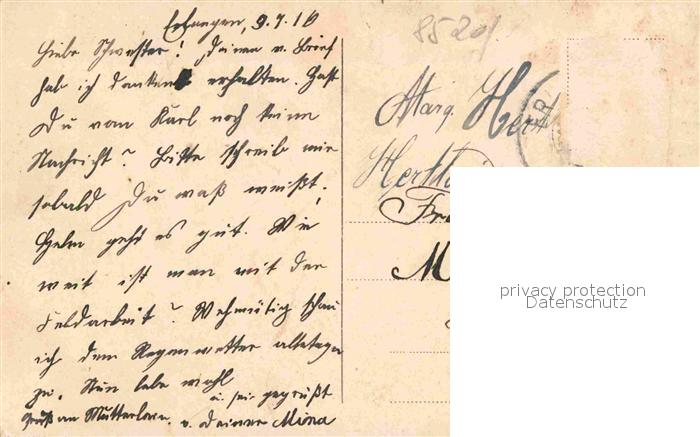 Erlangen, 9.7.16
Liebe Schwester! Deinen l. Brief
hab ich dankend erhalten. Hast
Du vom Karl noch keine
Nachricht? Bitte schreib mir
sobald Du was weißt.
geht es gut. Wie
weit ist man mit der
Feldarbeit? Wehmütig schau
ich dem Regenwetter
zu. Nun lebe wohl
u. sei gegrüßt
Gruß an v. Deiner Mina
8520/
Herr
Fr
M
privacy protection
Datenschutz